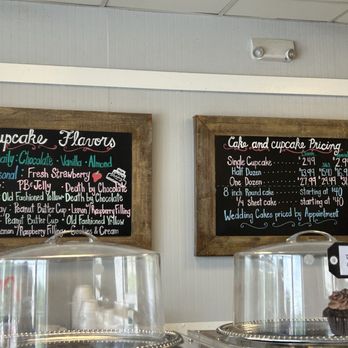 upcake Flavors
aily: Chocolate · Vanilla · Almond
sonal: Fresh Strawberry
PB+Jelly · Death by Chocolate
Old Fashioned Yellow · Death by Chocolate
ay · Peanut Butter Cup · Lemon/Raspberry Filling
Peanut Butter Cup · Old Fashioned Yellow
emon/Raspberry Filling · Cookies & Cream
Cake and cupcake Pricing
Single Cupcake 2.99
Half Dozen
One Dozen
8 inch Round cake starting at $40
1/4 sheet Cake starting at $40
Wedding Cakes priced by Appointment